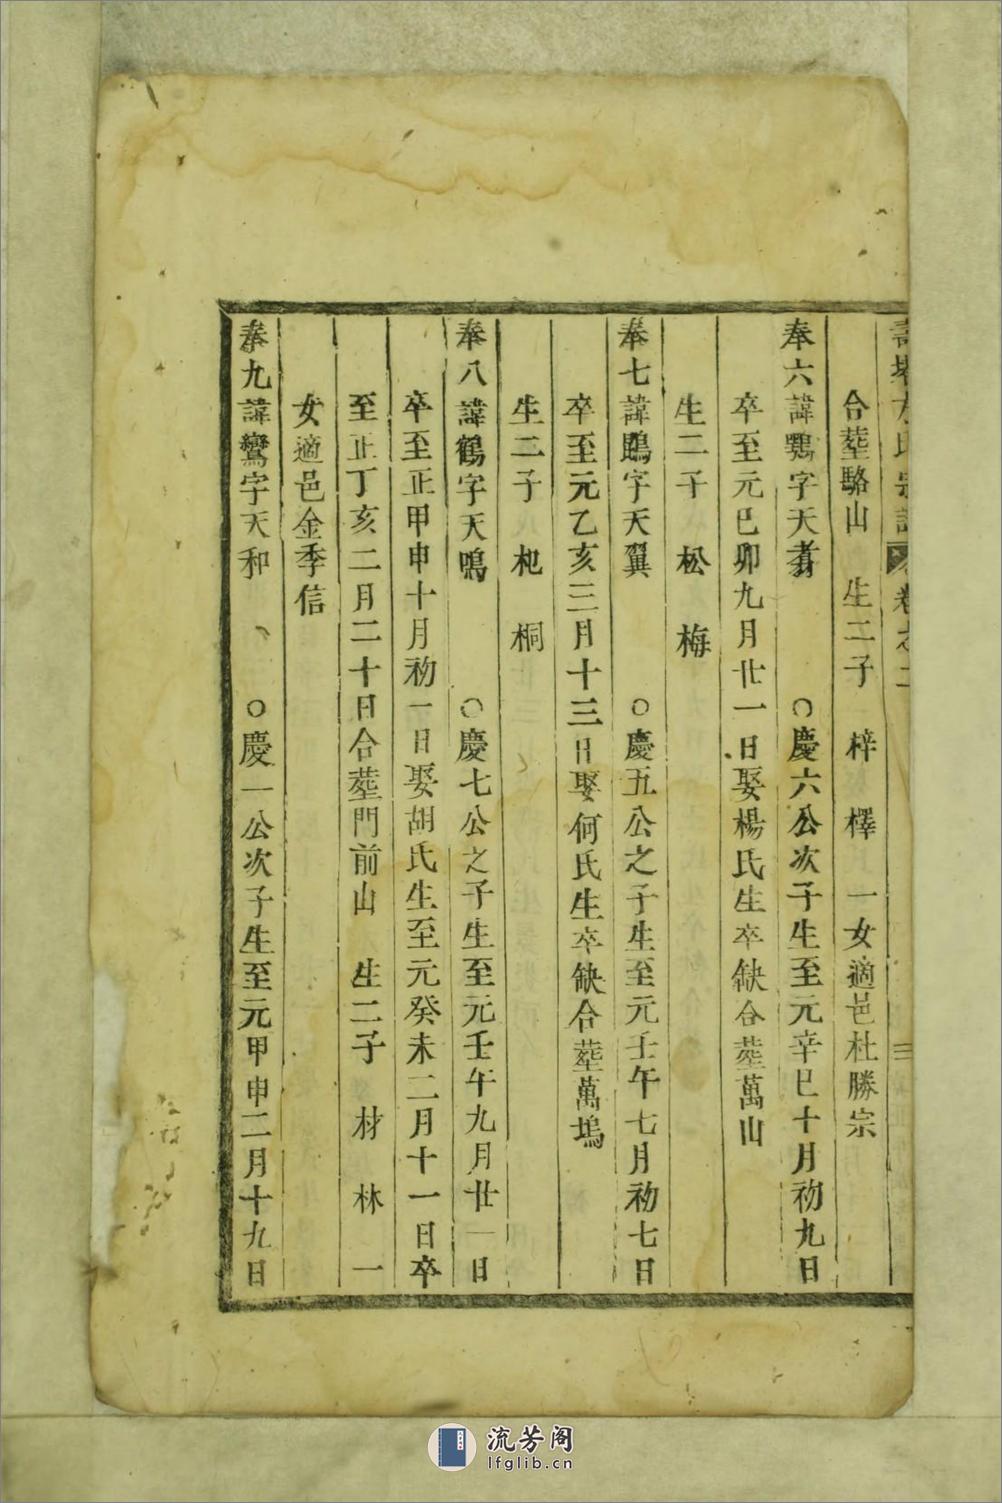 方氏宗譜 卷之二 三
合塟駱山 生二子 梓 檡 一女適邑杜勝宗
奉六諱鶚字天翥 ○慶六公次子生至元辛巳十月初九日
卒至元己卯九月廿一日娶楊氏生卒缺合塟萬山
生二子 松 梅
奉七諱鵾字天翼 ○慶五公之子生至元壬午七月初七日
卒至元乙亥三月十三日娶何氏生卒缺合塟萬塢
生二子 杞 桐
奉八諱鶴字天鳴 ○慶七公之子生至元壬午九月廿一日
卒至正甲申十月初一日娶胡氏生至元癸未二月十一日卒
至正丁亥二月二十日合塟門前山 生二子 材 林 一
女適邑金季信
奉九諱鸞字天和 ○慶一公次子生至元甲申二月十九日
流芳阁
lfglib.cn